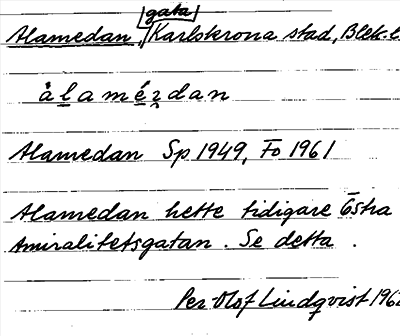 gata
Alamedan, Karlskrona stad, Blek. l.
àlamérdan
Alamedan Sp 1949, Fo 1961
Alamedan hette tidigare Östra
Amiralitetsgatan. Se detta.
Per-Olof Lindqvist 196